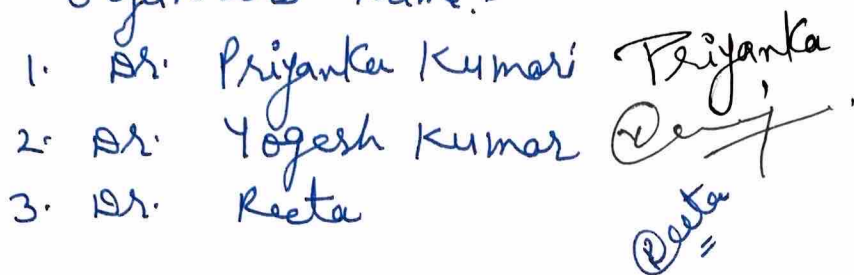 Name:-
1. Dr. Priyanka Kumari Priyanka
2. Dr. Yogesh Kumar
3. Dr. Reeta Reeta